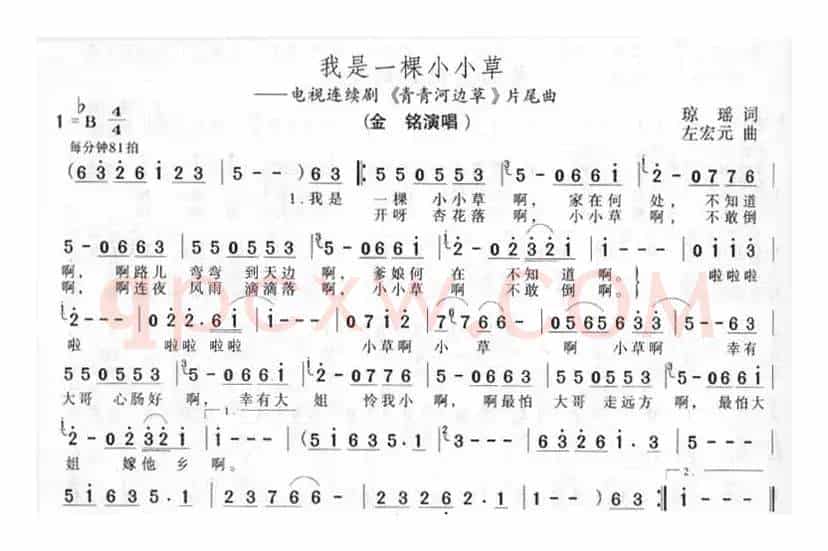 我是一棵小小草
——电视连续剧《青青河边草》片尾曲
1=♭B 4/4
(金 铭演唱)
琼 瑶 词
左宏元 曲
每分钟81拍
(6 3 2 6 1 2 3 | 5 - - ) 6 3 |: 5 5 0 5 5 3 | 5 - 0 6 6 i | 2 - 0 7 7 6 |
1.我是 一棵 小小草 啊, 家在何 处, 不知道
开呀 杏花落 啊, 小小草 啊, 不敢倒
5 - 0 6 6 3 | 5 5 0 5 5 3 | 5 - 0 6 6 i | 2 - 0 2 3 2 i | i - - - | 0 i i 3 |
啊, 啊路儿 弯弯 到天边 啊, 爹娘何 在 不知道 啊。 啦啦啦
啊, 啊连夜 风雨 滴滴落 啊, 小小草 啊 不敢倒 啊。
2 - - - | 0 2 2 . 6 i | i - - - | 0 7 i 2 | 7 7 6 6 - | 0 5 6 5 6 3 3 | 5 - - 6 3 |
啦 啦啦啦啦 小草啊 小 草 啊 小草啊 幸有
5 5 0 5 5 3 | 5 - 0 6 6 i | 2 - 0 7 7 6 | 5 - 0 6 6 3 | 5 5 0 5 5 3 | 5 - 0 6 6 i |
大哥 心肠好 啊, 幸有大 姐 怜我小 啊, 啊最怕 大哥 走远方 啊, 最怕大
2 - 0 2 3 2 i | i - - - | (5 i 6 3 5 . i | 3 - - - | 6 3 2 6 3 2 | 5 - - - |
1.
姐 嫁他 乡 啊。
5 i 6 3 5 . 1 | 2 3 7 6 6 - | 2 3 2 6 2 . 1 | 1 - - ) 6 3 :| i - - - ‖
2.
qpcxw.COM